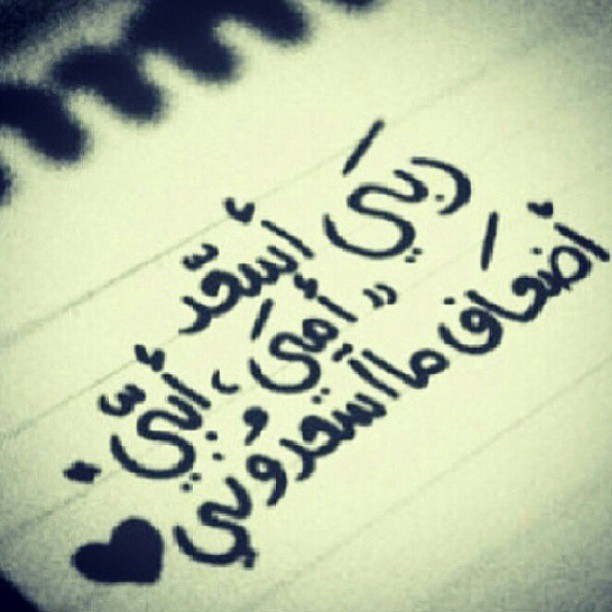 ربيَ أسعَد
" أميَ ، أبيّ .
أضعَاف ما أسعدُوني